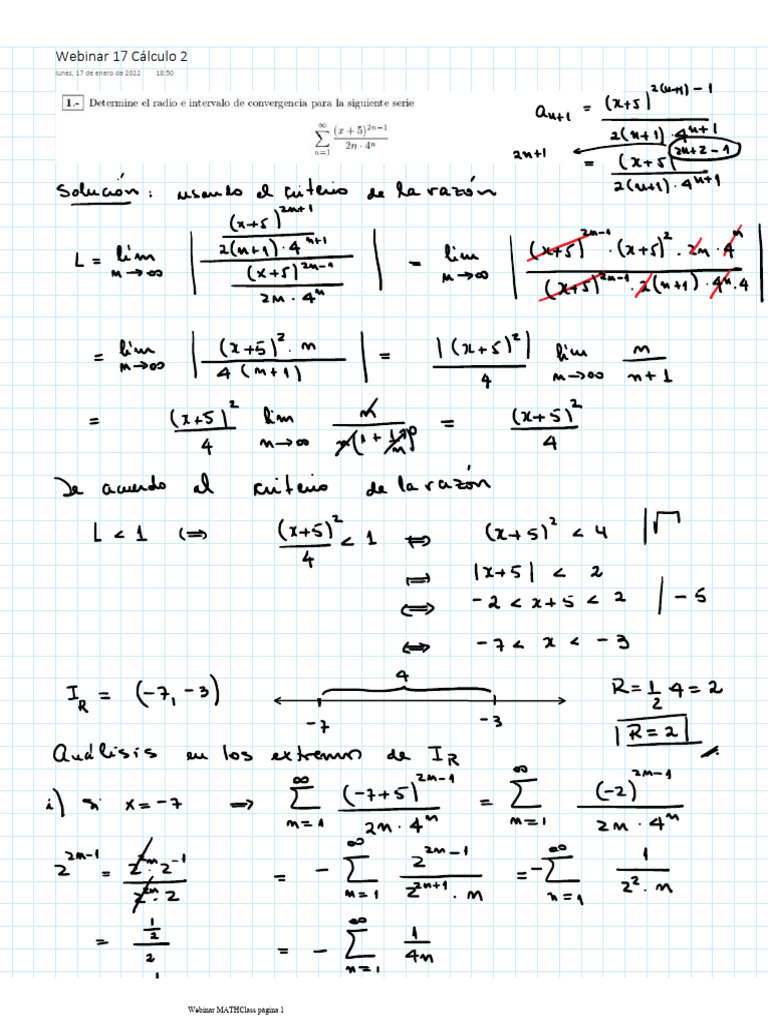 Webinar 17 Cálculo 2
lunes, 17 de enero de 2022 18:50
1.- Determine el radio e intervalo de convergencia para la siguiente serie
∞ ∑ n=1 (x + 5)^{2n−1} / 2n · 4^n
a_{n+1} = (x+5)^{2(n+1)-1} / 2(n+1) · 4^{n+1}
2n+1 ← = (x+5)^{2n+2-1} / 2(n+1) · 4^{n+1}
Solución: usando el criterio de la razón
L = lim n→∞ | (x+5)^{2n+1} / 2(n+1) · 4^{n+1} / (x+5)^{2n-1} / 2n · 4^n | = lim n→∞ | (x+5)^{2n-1} · (x+5)^2 · 2n · 4^n / (x+5)^{2n-1} · 2(n+1) · 4^n · 4 |
= lim n→∞ | (x+5)^2 · n / 4(n+1) | = |(x+5)^2| / 4 lim n→∞ n / n+1
= (x+5)^2 / 4 lim n→∞ n / n(1 + 1/n)^0 = (x+5)^2 / 4
De acuerdo al criterio de la razón
L < 1 ⇔ (x+5)^2 / 4 < 1 ⇔ (x+5)^2 < 4 | √
⇒ |x+5| < 2
⇔ -2 < x+5 < 2 | -5
⇔ -7 < x < -3
I_R = (-7, -3) 4 -7 -3 R = 1/2 4 = 2
R = 2
Análisis en los extremos de I_R
i) si x = -7 ⇒ ∞ ∑ n=1 (-7+5)^{2n-1} / 2n · 4^n = ∞ ∑ n=1 (-2)^{2n-1} / 2n · 4^n
2^{2n-1} = 2^{2n} · 2^{-1} / 2^{2n} · 2 = - ∞ ∑ n=1 2^{2n-1} / 2^{2n+1} · n = - ∞ ∑ n=1 1 / 2^2 · n
= 1/2 / 2 = - ∞ ∑ n=1 1 / 4n
Webinar MATHClass página 1